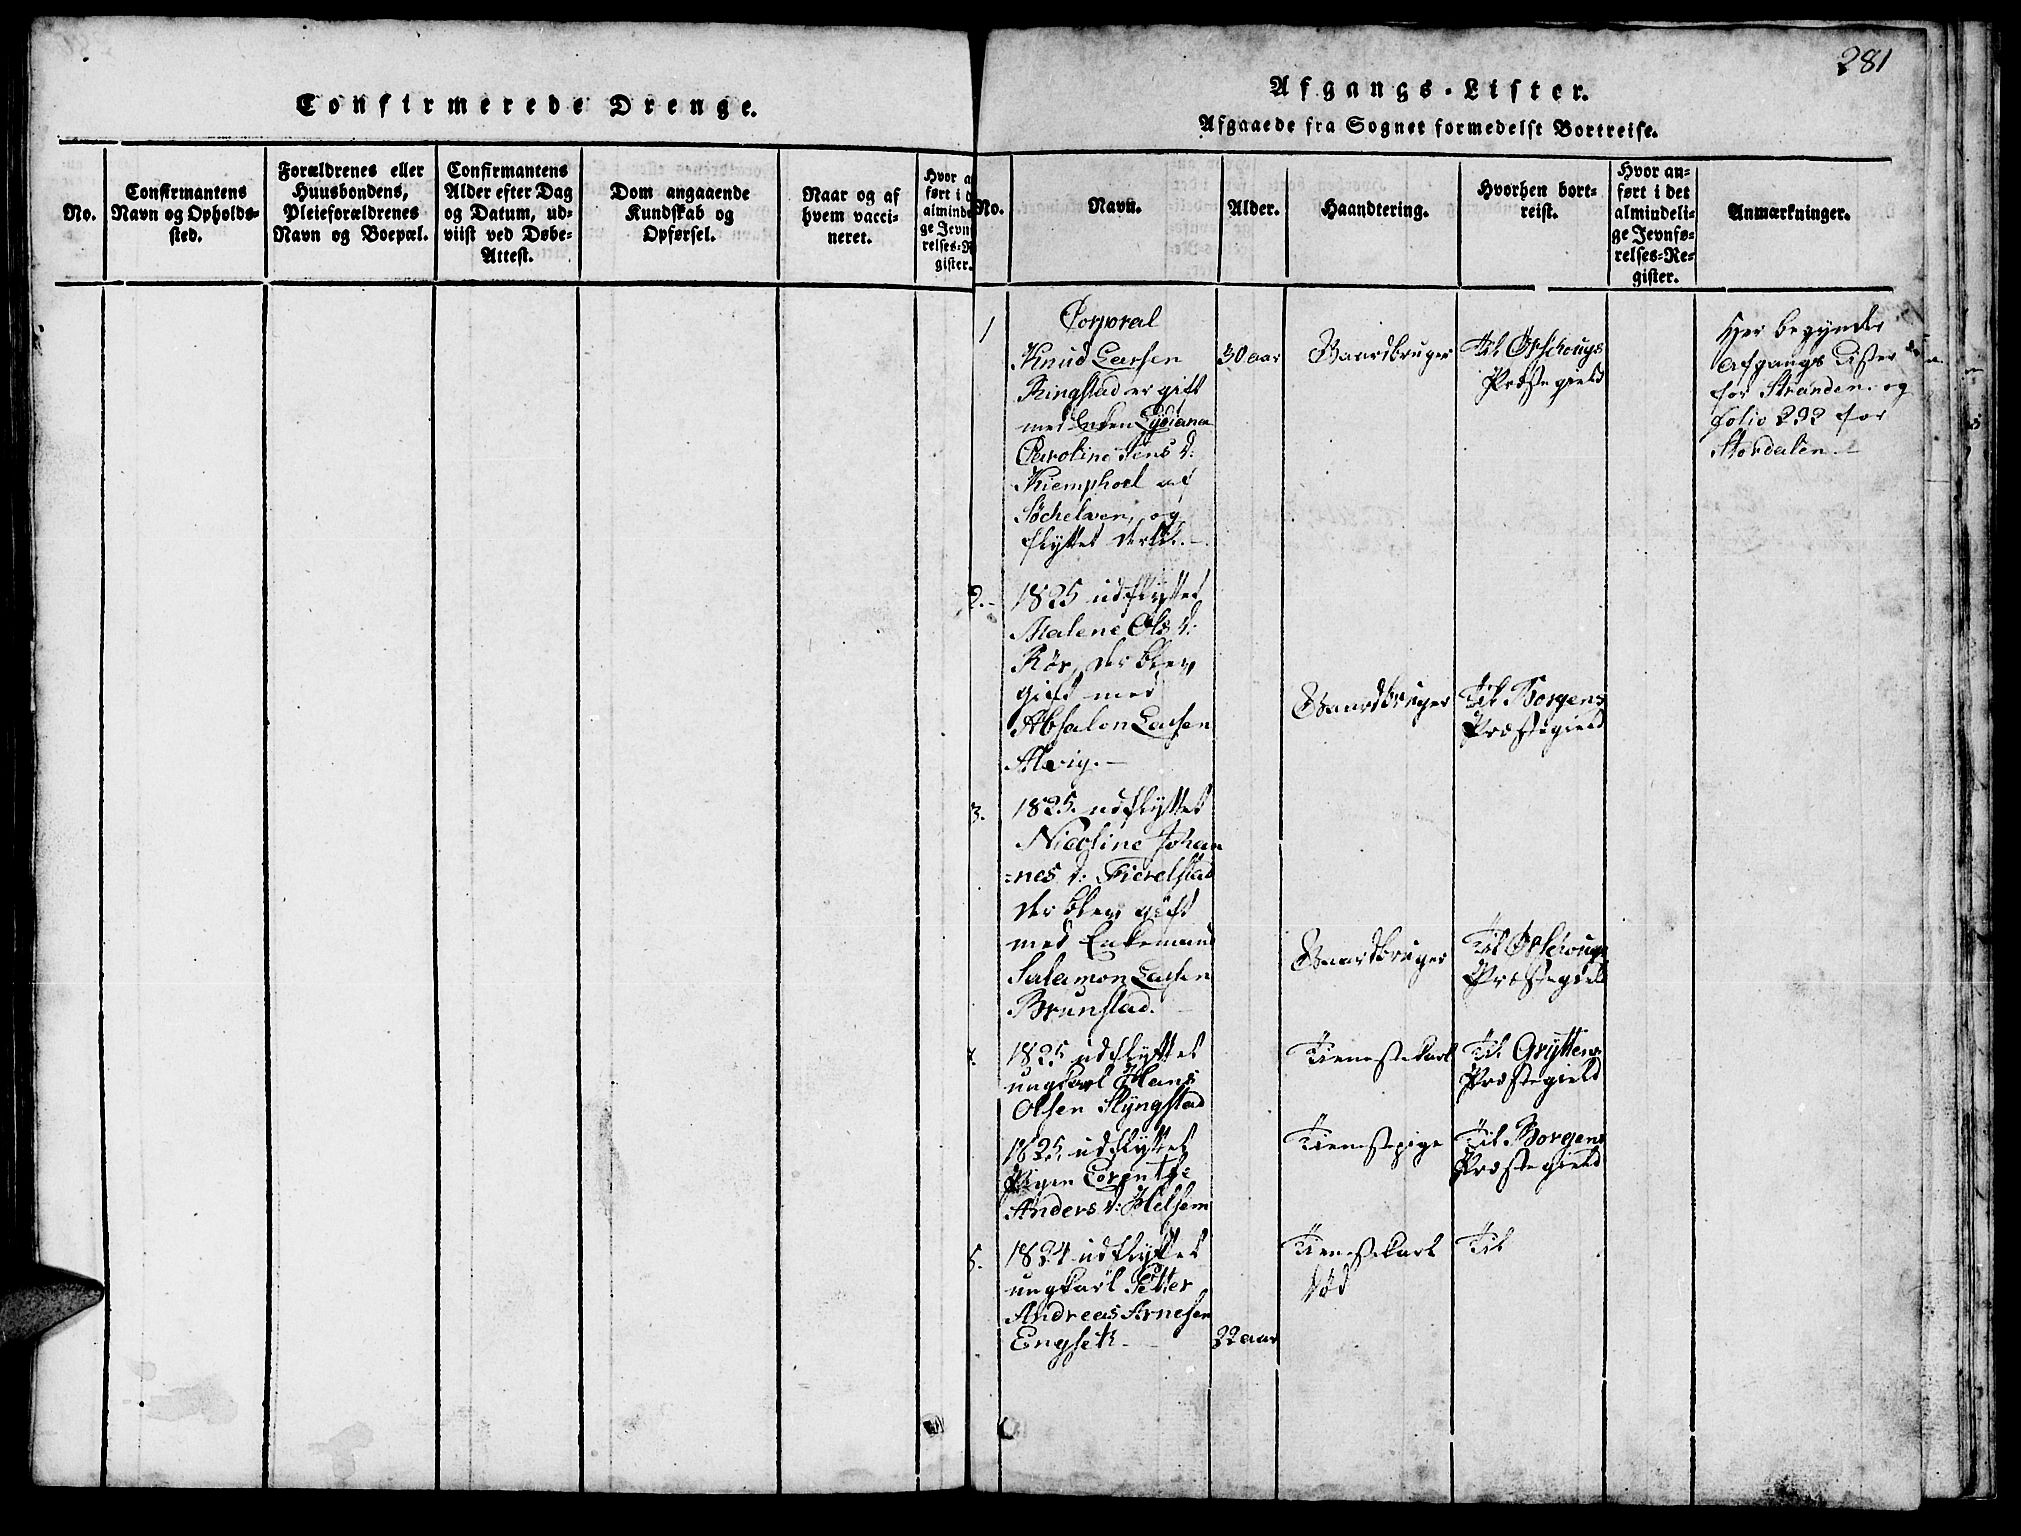 Confirmerede Drenge.
No.
Confirmantens
Navn og Opholds-
sted.
Forældrenes eller
Huusbondens,
Pleieforældrenes
Navn og Boepæl.
Confirmantens
Alder efter Dag
og Datum, ud-
viist ved Døbe-
Attest.
Dom angaaende
Kundskab og
Opførsel.
Naar og af
hvem vacci-
neret.
Hvor a
ført i d
alminde
ge Jevn
relses-R
gister.
281
Afgangs-Lister.
Afgaaede fra Sognet formedelst Bortreise.
No.
Navn.
Alder.
Haandtering.
Hvorhen bort-
reist.
Hvor an-
ført i det
almindeli-
ge Jevnfø-
relses-Re-
gister.
Anmærkninger.
1
Corporal
Knud Larsen
Ringstad er gift
med Enken
Caroline Jens d:
af
og
flyttet dertil.
30 aar
Gaardbruger
Til Ørschougs
Præstegield
Her begynder
Afgangs Lister
for Stranden og
folio 292 for
Stordalen
2.
1825 udflyttet
Malene Ols d:
Rør, der blev
gift med
Absalon Larsen
Alvig.
Gaardbruger
Til Borgens
Præstegield
3.
1825. udflyttet
Nicoline Johan
=nes d: Fierelstad
der blev gift
med Enkemand
Salamon Larsen
Brunstad.
Gaardbruger
Til Ørschougs
Præstegield
1825 udflyttet
ungkarl Hans
Olsen Slyngstad
Tienestekarl
Til Gryttens
Præstegield
1825. udflyttet
Pigen
Anders d: Helsem
Tienestepige
Til Borgens
Præstegield
5.
1824 udflyttet
ungkarl Petter
Andreas Arnesen
Engset
22 aar
Tienestekarl
død
Til